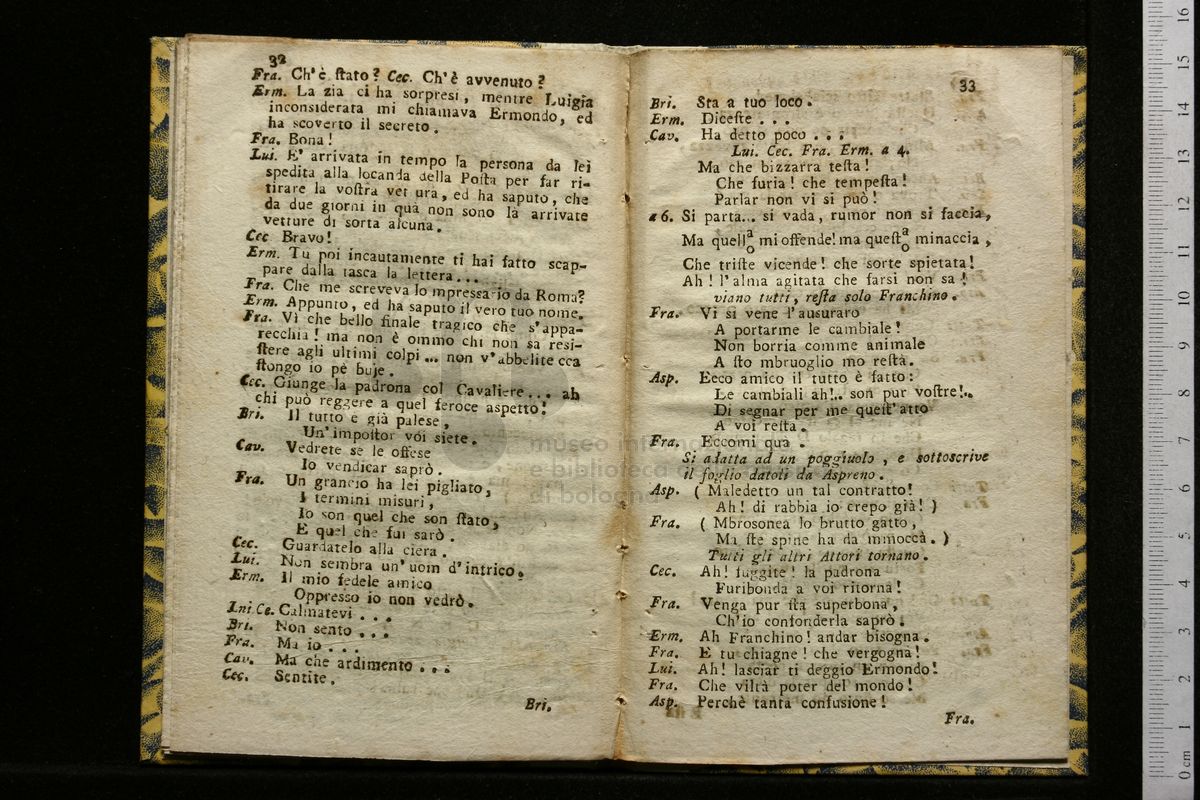 32
Fra. Ch'è ſtato? Cec. Ch'è avvenuto?
Erm. La zia ci ha sorpresi, mentre Luigia
inconsiderata mi chiamava Ermondo, ed
ha scoverto il secreto.
Fra. Bona!
Lui. E' arrivata in tempo la persona da lei
spedita alla locanda della Poſta per far ri-
tirare la voſtra vet ura, ed ha saputo, che
da due giorni in quà non sono là arrivate
vetture di sorta alcuna.
Cec Bravo!
Erm. Tu poi incautamente ti hai fatto scap-
pare dalla tasca la lettera...
Fra. Che me screveva lo mpressario da Roma?
Erm. Appunto, ed ha saputo il vero tuo nome.
Fra. Vì che bello finale tragico che s'appa-
recchia! ma non è ommo chi non sa resi-
ſtere agli ultimi colpi... non v'abbelite cca
ſtongo io pè buje.
Cec. Giunge la padrona col Cavaliere... ah
chi può reggere a quel feroce aspetto!
Bri. Il tutto è già palese,
Un'impoſtor voi siete.
Cav. Vedrete se le offese
Io vendicar saprò.
Fra. Un grancio ha lei pigliato,
I termini misuri,
Io son quel che son ſtato,
E quel che fui sarò.
Cec. Guardatelo alla ciera.
Lui. Non sembra un'uom d'intrico.
Erm. Il mio fedele amico
Oppresso io non vedrò.
Lni.Ce. Calmatevi...
Bri. Non sento...
Fra. Ma io...
Cav. Ma che ardimento...
Cec. Sentite.
Bri.
33
Bri. Sta a tuo loco.
Erm. Diceſte...
Cav. Ha detto poco...
Lui. Cec. Fra. Erm. a 4.
Ma che bizzarra teſta!
Che furia! che tempeſta!
Parlar non vi si può!
a 6. Si parta... si vada, rumor non si faccia,
Ma quell a/o mi offende! ma queſt a/o minaccia,
Che triſte vicende! che sorte spietata!
Ah! l'alma agitata che farsi non sa!
viano tutti, reſta solo Franchino.
Fra. Vi si vene l'ausuraro
A portarme le cambiale!
Non borria comme animale
A ſto mbruoglio mo reſtà.
Asp. Ecco amico il tutto è fatto:
Le cambiali ah!.. son pur voſtre!..
Di segnar per me queſt'atto
A voi reſta.
Fra. Eccomi quà.
Si adatta ad un poggiuolo, e sottoscrive
il foglio datoli da Aspreno.
Asp. (Maledetto un tal contratto!
Ah! di rabbia io crepo già!)
Fra. (Mbrosonea lo brutto gatto,
Ma ſte spine ha da mmoccà.)
Tutti gli altri Attori tornano.
Cec. Ah! fuggite! la padrona
Furibonda a voi ritorna!
Fra. Venga pur ſta superbona,
Ch'io confonderla saprò.
Erm. Ah Franchino! andar bisogna.
Fra. E tu chiagne! che vergogna!
Lui. Ah! lasciar ti deggio Ermondo!
Fra. Che viltà poter del mondo!
Asp. Perchè tanta confusione!
Fra.
museo
e biblioteca
di bologna
16
15
14
13
12
11
10
9
8
7
6
5
4
3
2
1
0 cm